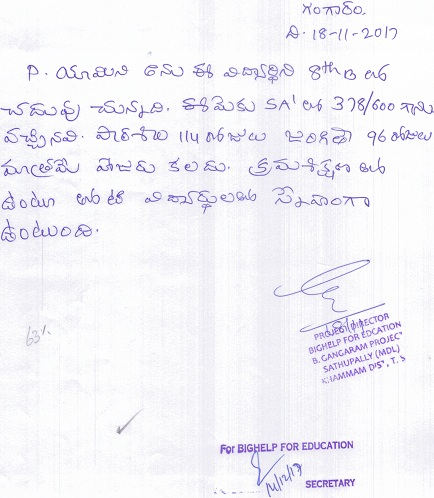 గంగారం.
ది. 18-11-2017
P. యామిని అను ఈ విద్యార్థిని 8th B లో
చదువు చున్నది. ఈమెకు SA1 లో 378/600 గాను
వచ్చినవి. పాఠశాల 114 రోజులు జరిగితే 96 రోజులు
మాత్రమే హాజరు కలదు. క్రమశిక్షణ లో
ఉంటూ తోటి విద్యార్థులతో స్నేహంగా
ఉంటుంది.
63%
PROJECT DIRECTOR
BIGHELP FOR EDCATION
B. GANGARAM PROJECT
SATHUPALLY (MDL)
KHAMMAM DIST, T.S
For BIGHELP FOR EDUCATION
14/12/17
SECRETARY